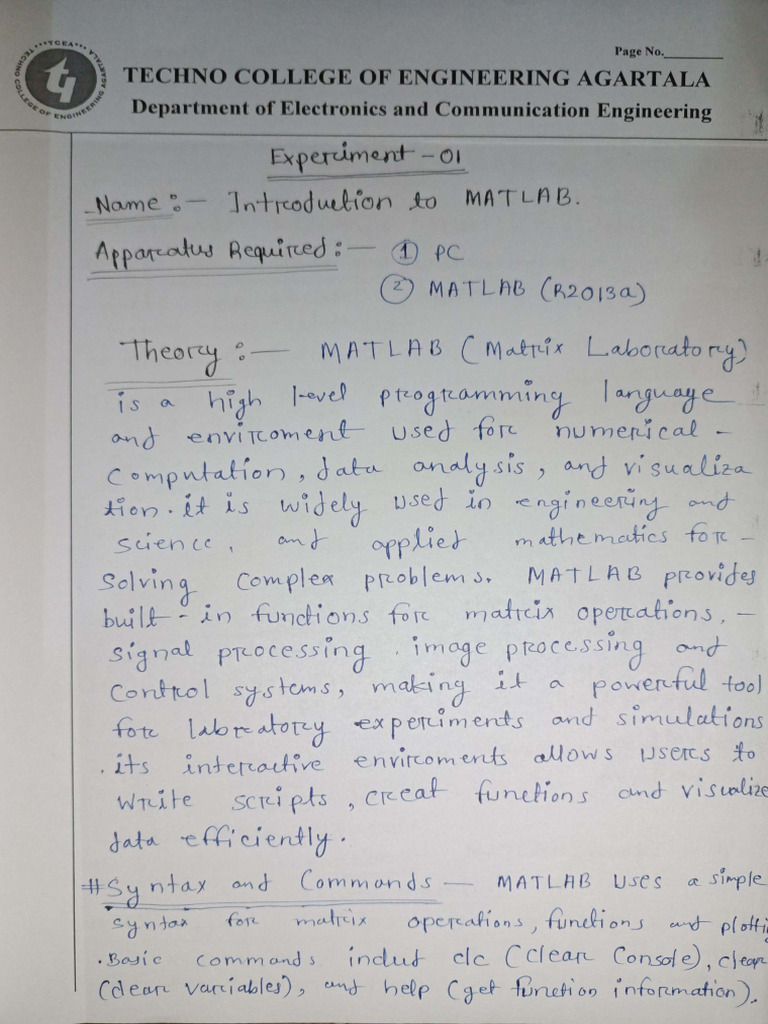 Page No.
TECHNO COLLEGE OF ENGINEERING AGARTALA
Department of Electronics and Communication Engineering
Experiment - 01
Name :- Introduction to MATLAB.
Apparatus Required :- ① PC
② MATLAB (R2013a)
Theory :- MATLAB (Matrix Laboratory)
is a high level programming language
and enviroment used for numerical -
Computation, data analysis, and visualiza
tion. it is widely used in engineering and
science, and applied mathematics for -
Solving complex problems. MATLAB provides
built-in functions for matrix operations, -
signal processing. image processing and
Control systems, making it a powerful tool
for labreatory experiments and simulations
. its interactive enviroments allows users to
write scripts, creat functions and visualize
data efficiently.
# Syntax and Commands - MATLAB uses a simple
syntax for matrix operations, functions and plotti
. Basic commands indut clc (Clear Console), clear
(clear variables), and help (get function information).